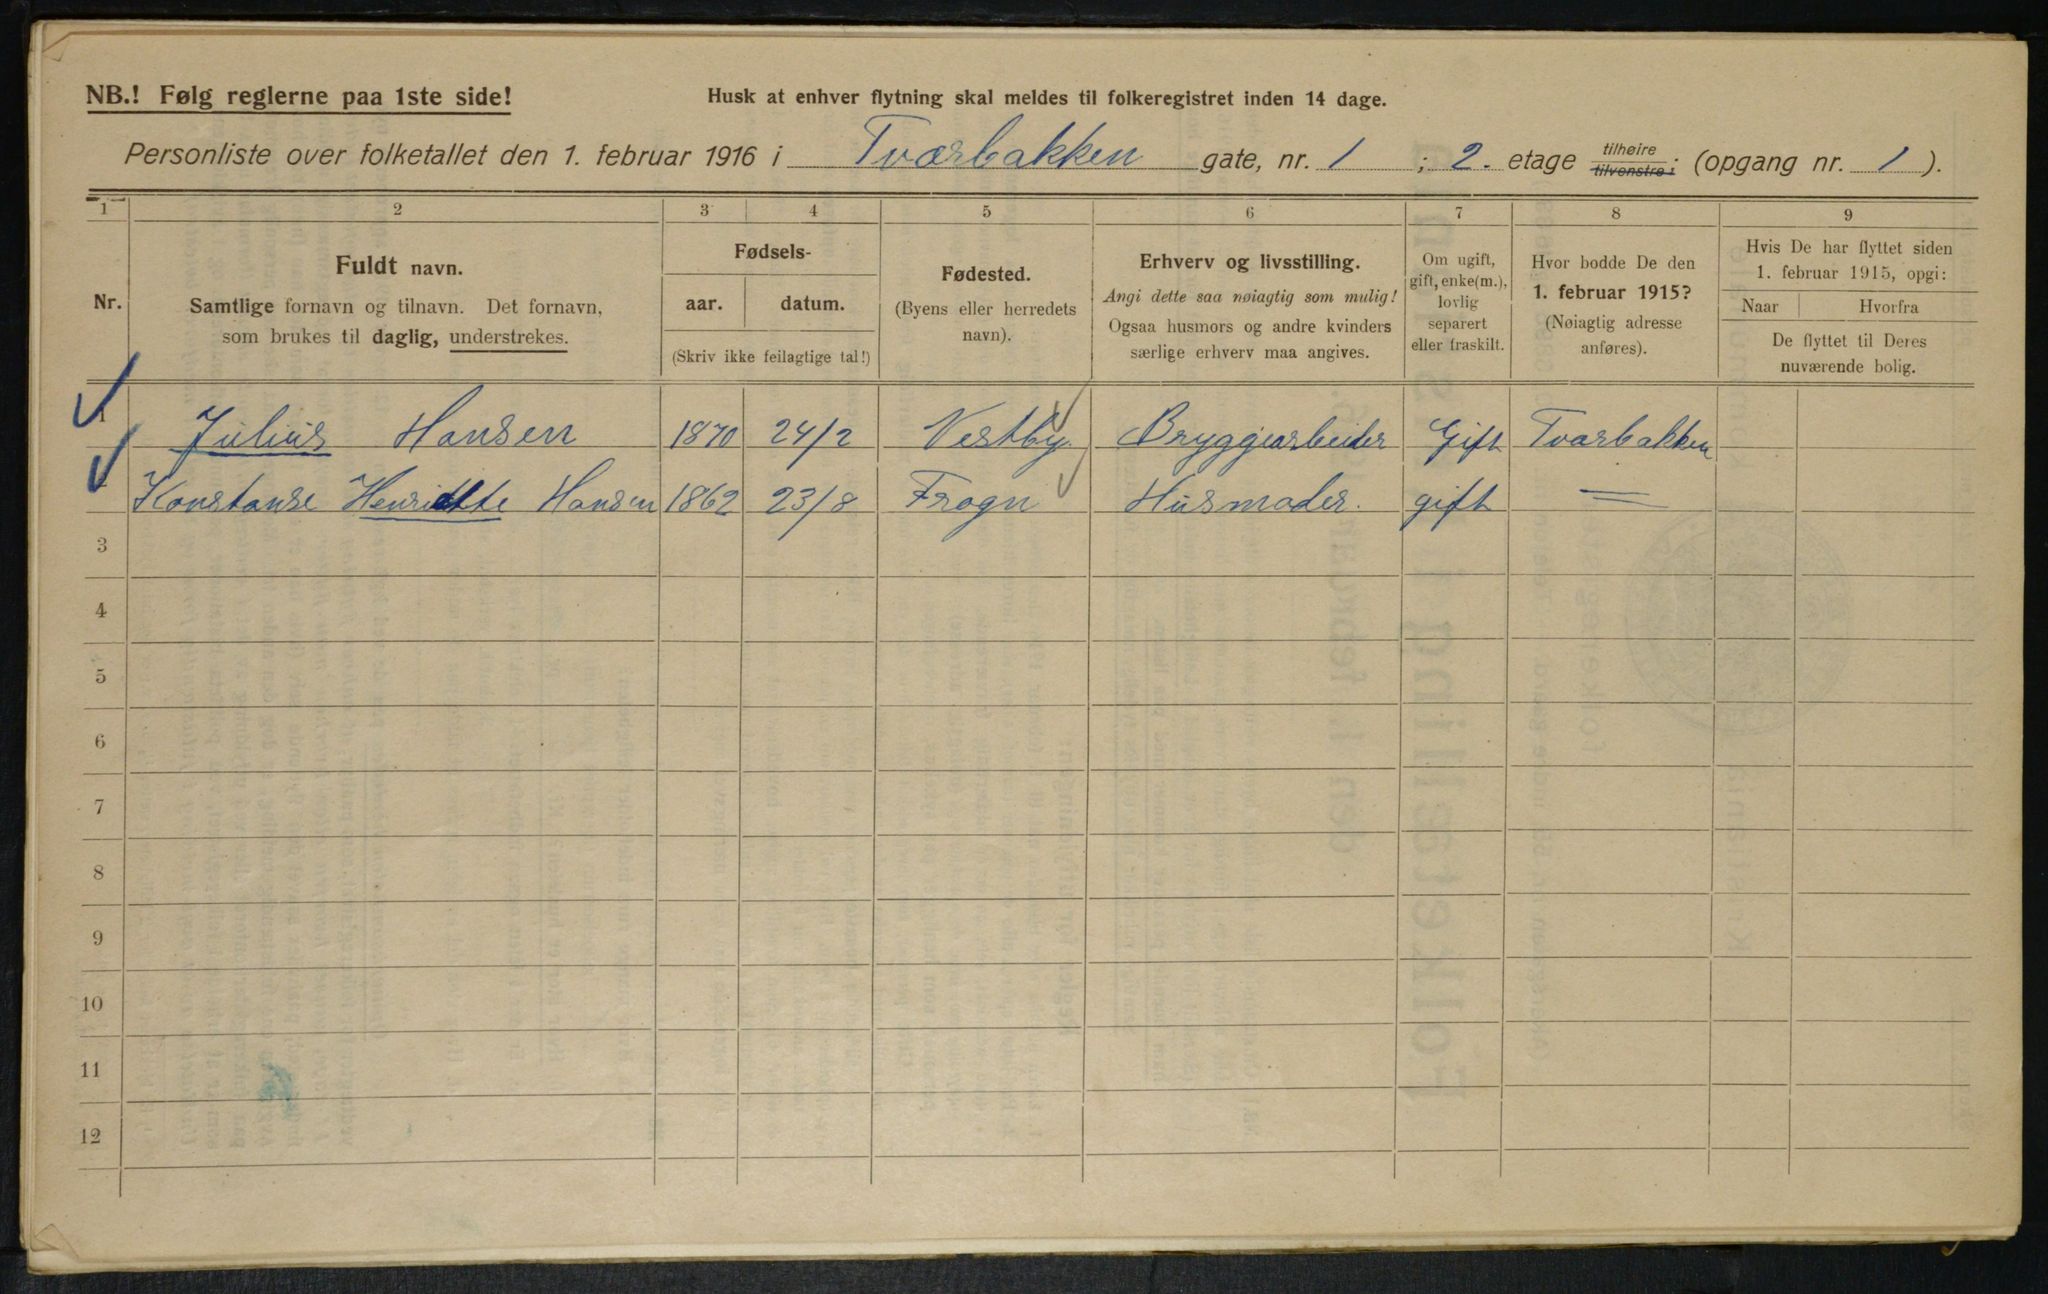 NB.! Følg reglerne paa 1ste side!
Husk at enhver flytning skal meldes til folkeregistret inden 14 dage.
Personliste over folketallet den 1. februar 1916 i Tværbakken gate, nr. 1 ; 2. etage tilhøire tilvenstre ; (opgang nr. 1 ).
1 2 3 4 5 6 7 8 9
Nr.
Fuldt navn.
Samtlige fornavn og tilnavn. Det fornavn,
som brukes til daglig, understrekes.
Fødsels-
aar. datum.
(Skriv ikke feilagtige tal!)
Fødested.
(Byens eller herredets
navn).
Erhverv og livsstilling.
Angi dette saa nøiagtig som mulig!
Ogsaa husmors og andre kvinders
særlige erhverv maa angives.
Om ugift,
gift, enke(m.),
lovlig
separert
eller fraskilt.
Hvor bodde De den
1. februar 1915?
(Nøiagtig adresse
anføres).
Hvis De har flyttet siden
1. februar 1915, opgi:
Naar Hvorfra
De flyttet til Deres
nuværende bolig.
1 Julius Hansen 1870 24/2 Vestby Bryggearbeider Gift Tværbakken
Konstanse Henriette Hansen 1862 23/8 Frogn Husmoder. gift =
3
4
5
6
7
8
9
10
11
12